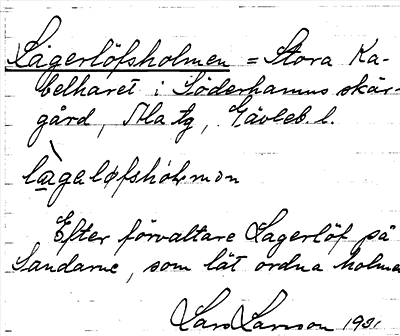 Lagerlöfsholmen = Stora Ka-
belharet i Söderhamns skär-
gård, Hla tg, Gävleb. l.
làgeløfshólmen
Efter förvaltare Lagerlöf på
Sandarne, som lät ordna holmen
Lars Larsson 1931